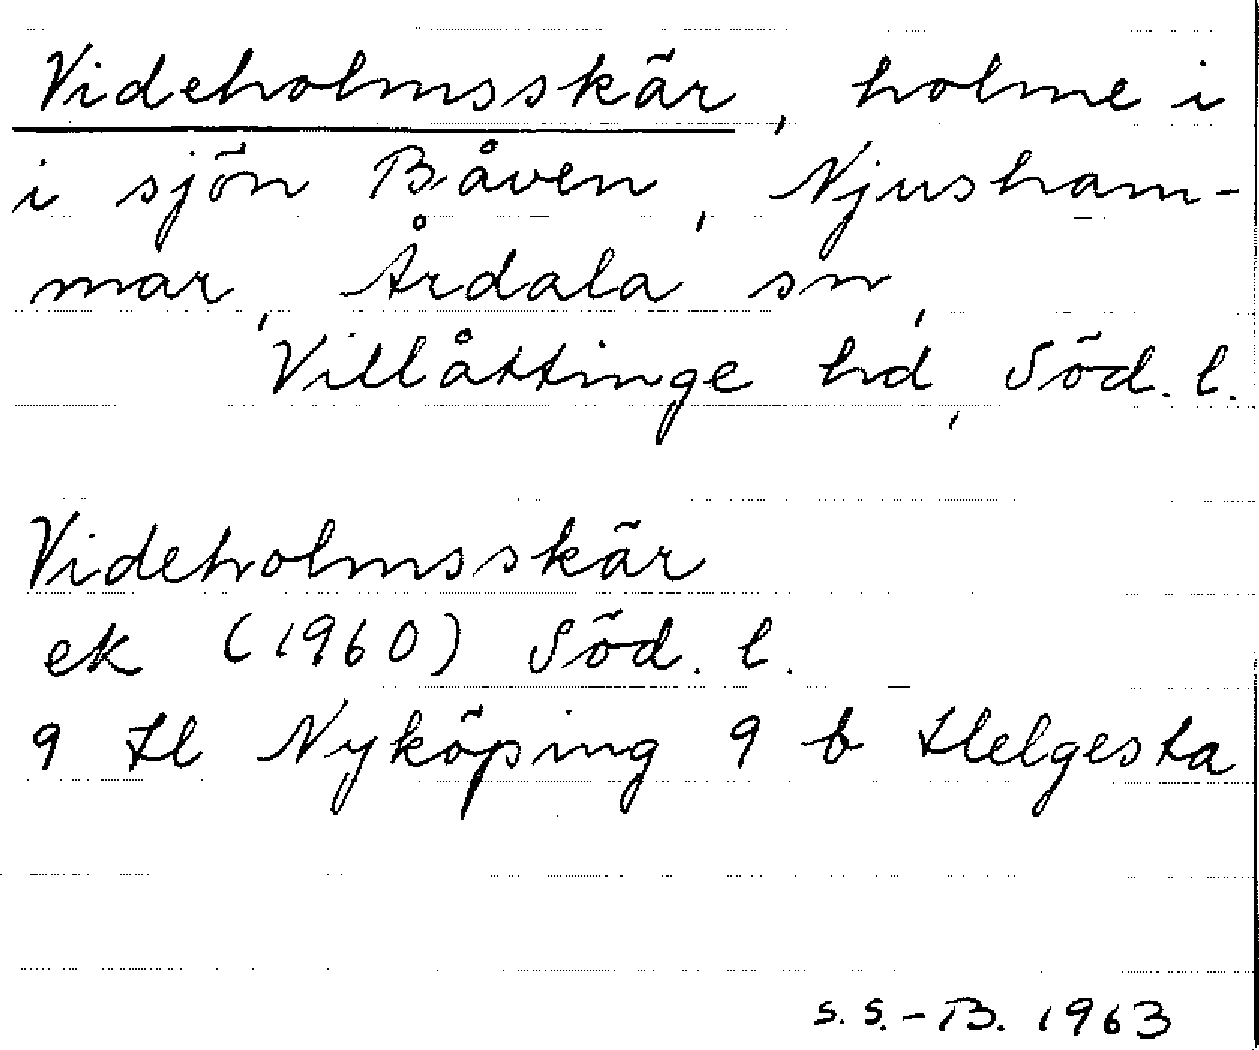 Videholmsskär, holme i
i sjön Båven, Njusham-
mar, Årdala sn,
Villåttinge hd, Söd. l.
Videholmsskär
ek (1960) Söd. l.
9 H Nyköping 9 b Helgesta
S.S.-B. 1963